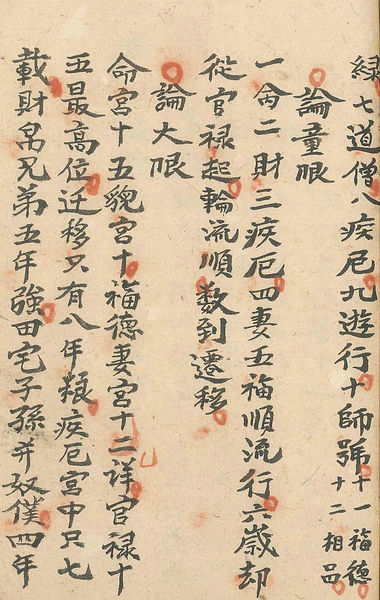 緑七道僧八疾厄九遊行十師號十一福德十二相品
論童限
一命二財三疾厄四妻五福順流行六歲却
從官禄起輪流順数到遷移
論大限
命宮十五貌宮十福德妻宮十二詳官禄十
五最高位迁移只有八年粮疾厄宮中只七
載財帛兄弟五年強田宅子孫并奴僕四年